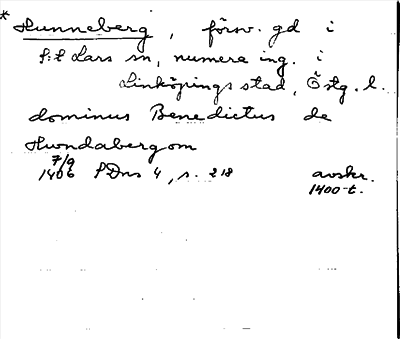 * Hunneberg, försv. gd i
S:t Lars sn, numera ing. i
Linköpings stad, Östg. l.
dominus Benedictus de
Hundabergom
7/9
1406 SDns 4, s. 218 avskr.
1400-t.